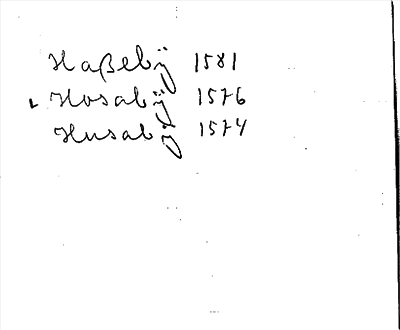 Haßebÿ 1581
Hosabÿ 1576
Husabÿ 1574